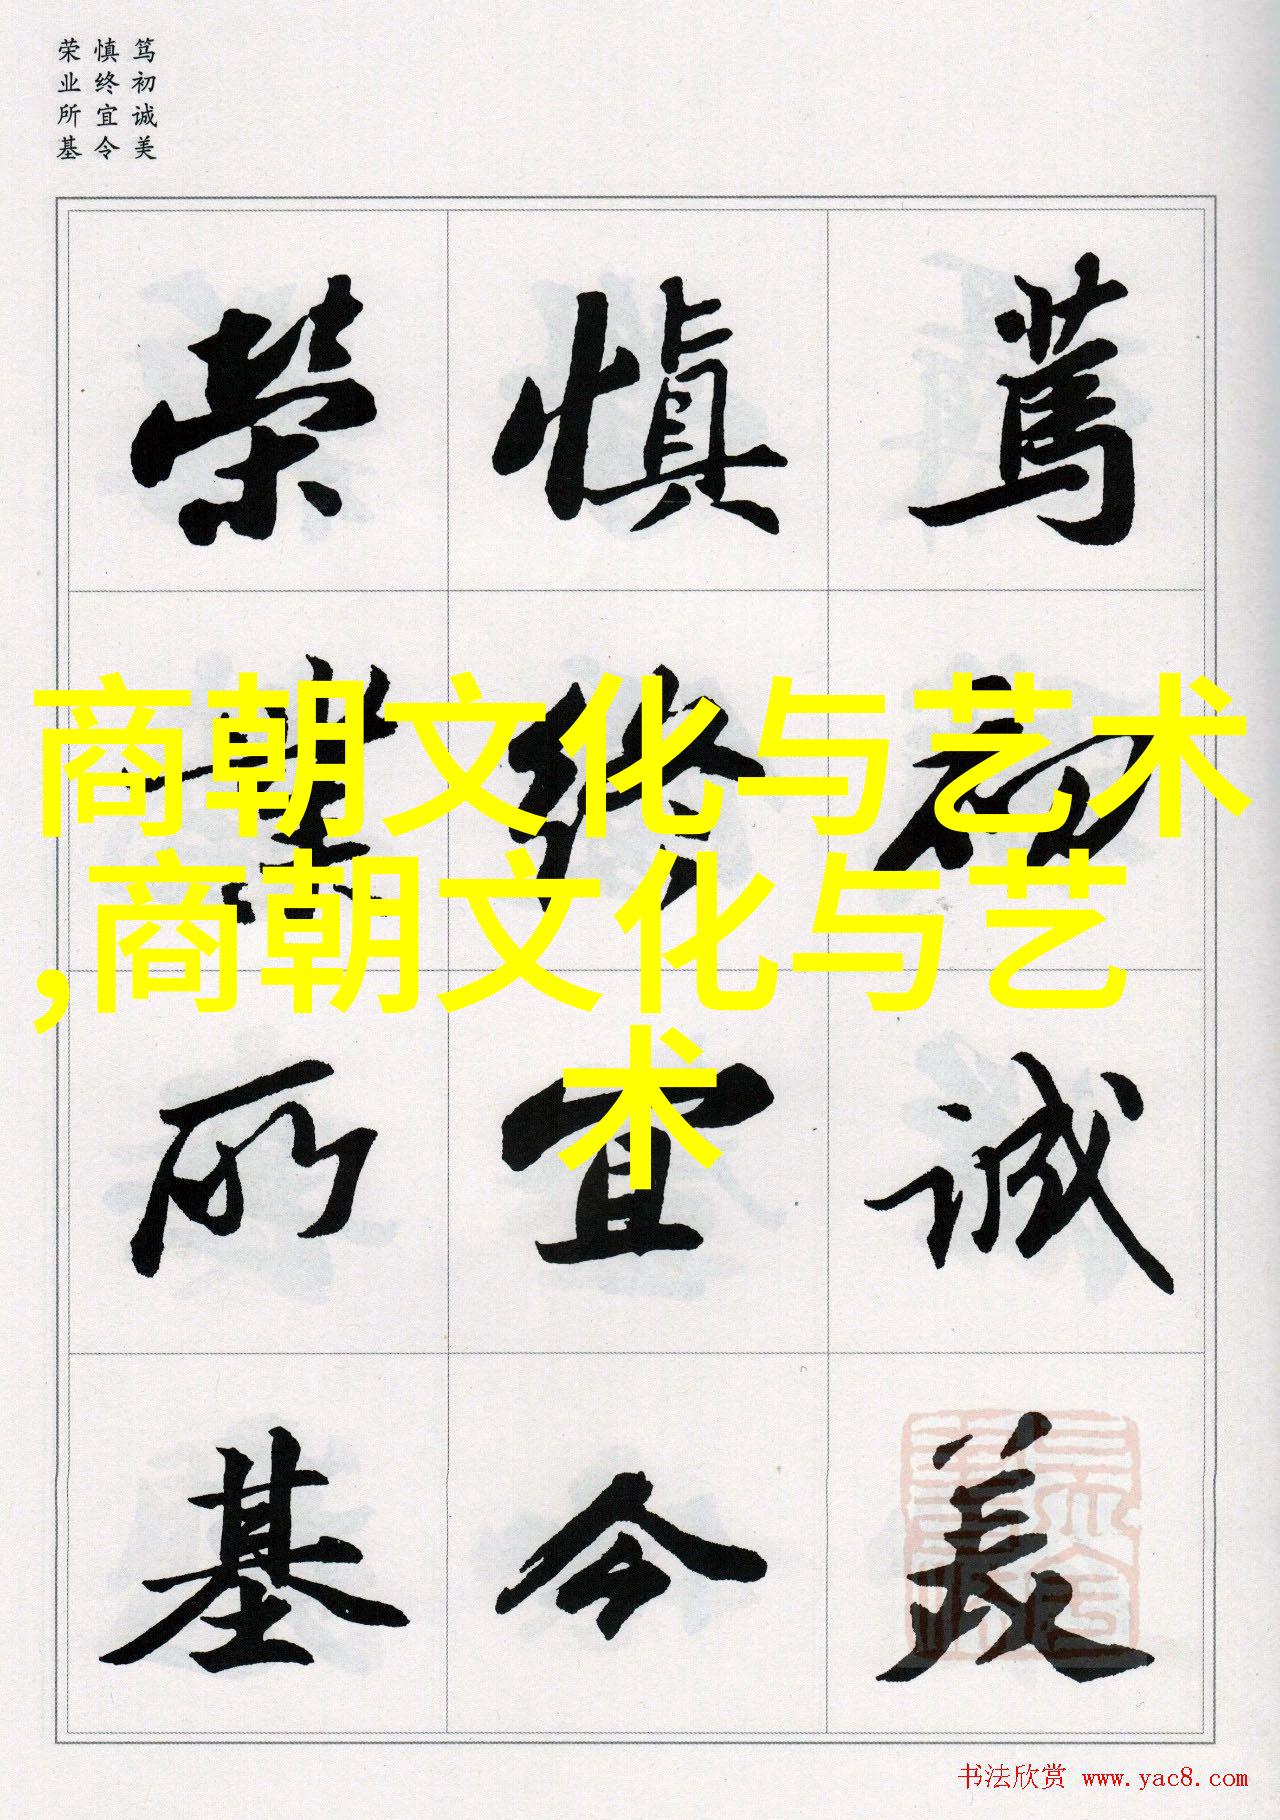 笃初诚美
慎终宜令
荣业所基
篤初诚美
慎终宜令
荣業所基
商朝文化与艺术
,商朝文化与艺
术
书法欣赏 www.yac8.com